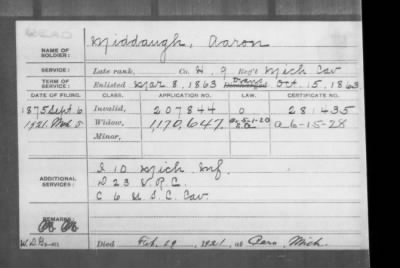 DEAD
NAME OF SOLDIER: Middaugh, Aaron
SERVICE: Late rank, Co. H, 9 Reg't Mich Cav
TERM OF SERVICE: Enlisted Mar 8, 1863 Trans Oct. 15, 1863
DATE OF FILING. CLASS. APPLICATION NO. LAW. CERTIFICATE NO.
1875 Sept 6 Invalid, 207844 0 281435
1921. Mch 5 Widow, 1,170,647 a 6-15-28
Minor,
ADDITIONAL SERVICES:
I 10 Mich Inf.
D 23 V.R.C.
C 6 U.S.C. Cav.
REMARKS:
Died Feb. 19, 1921, at Caro, Mich.